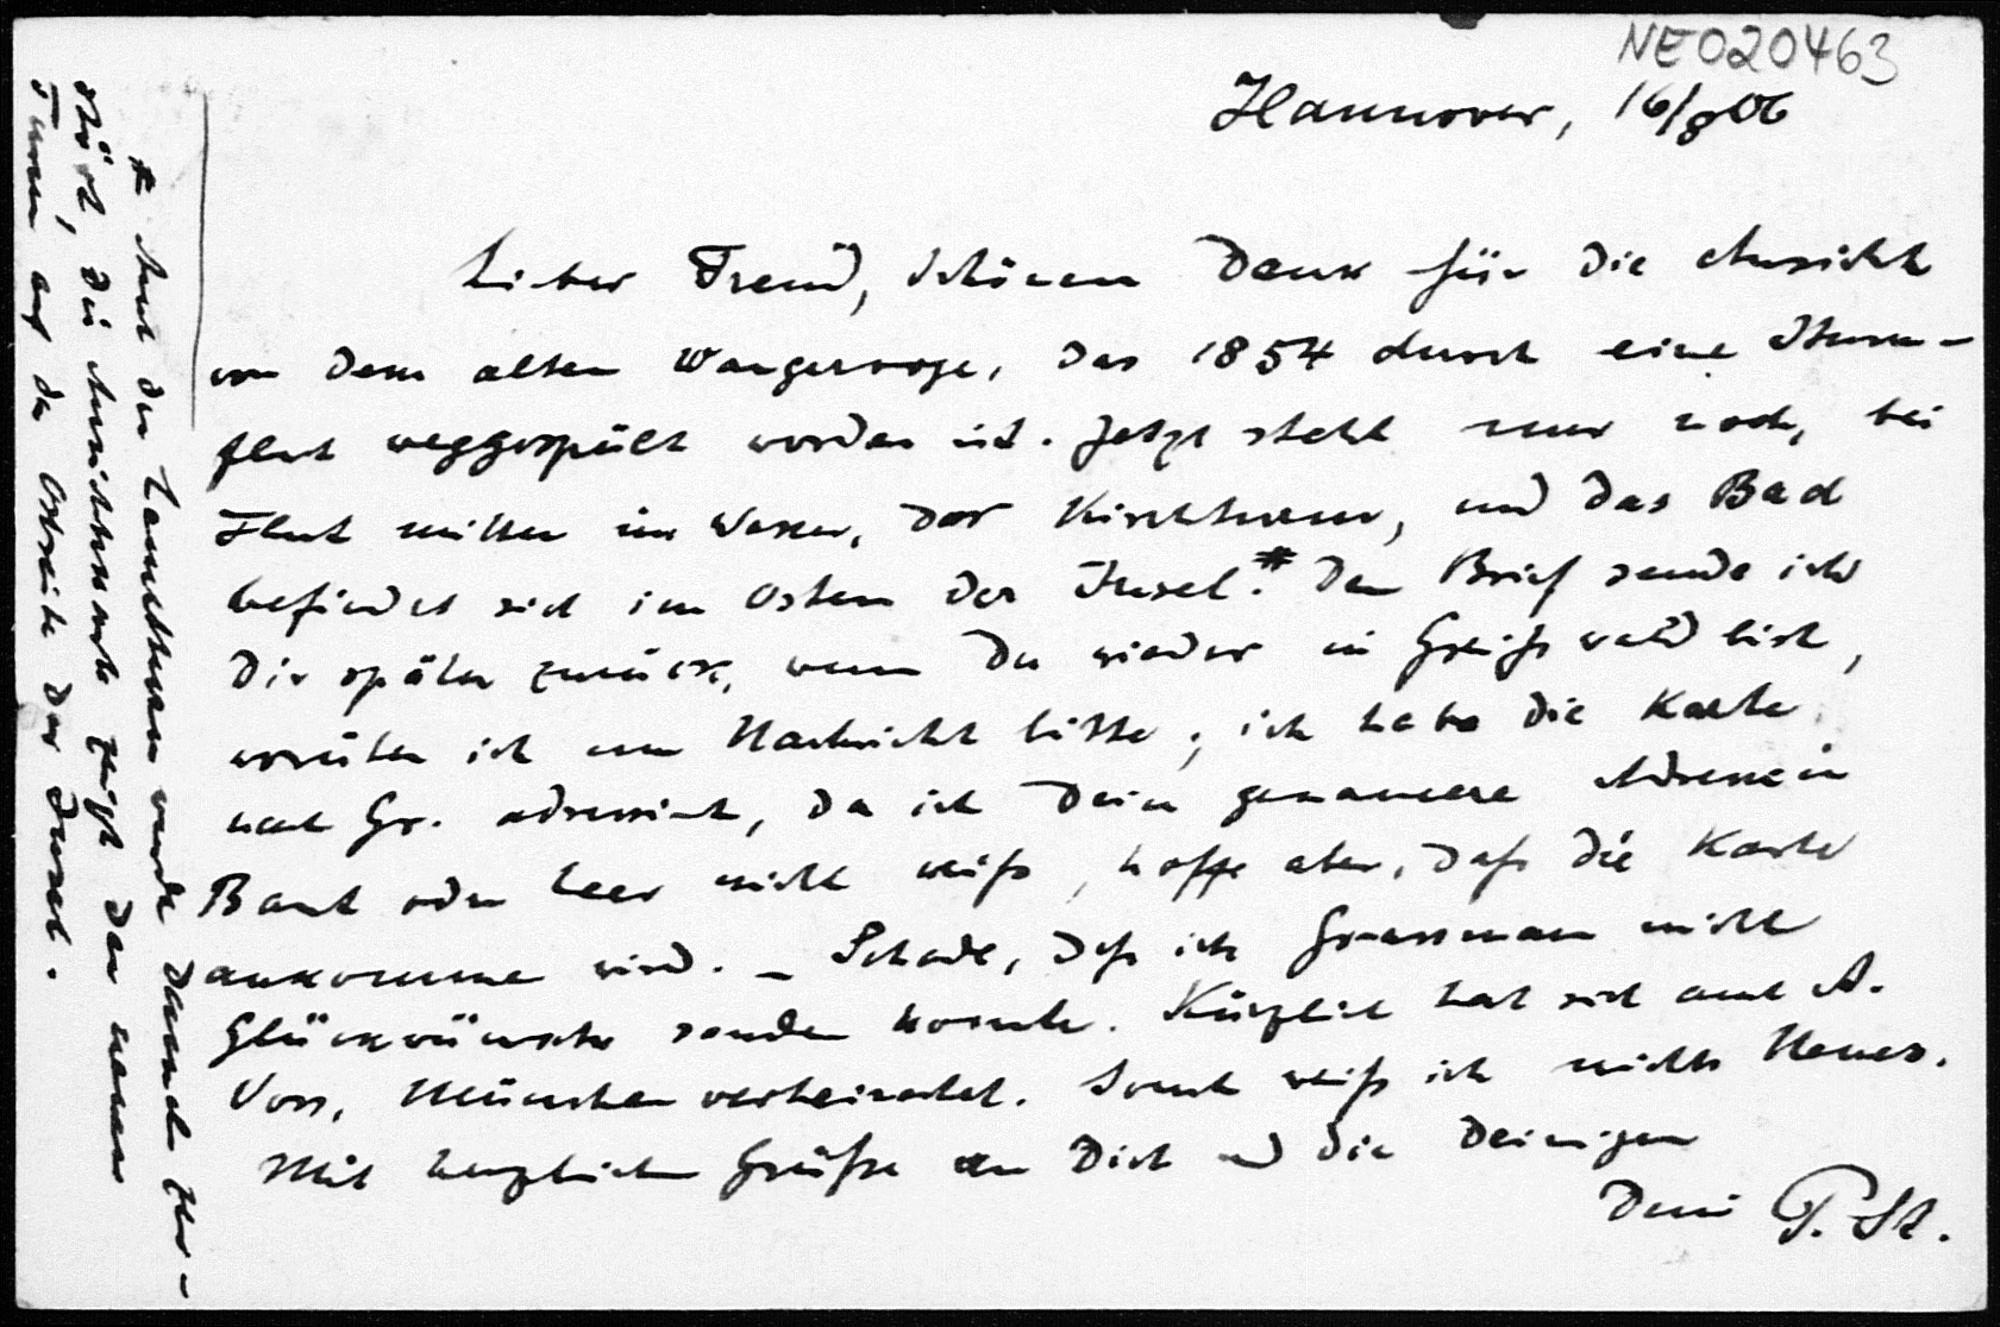 NE020463
Hannover, 16/8 06
Lieber Freund, schönen Dank für die Ansicht
von dem alten Wangerooge, das 1854 durch eine Sturm-
flut weggespült worden ist. Jetzt steht nur noch, bei
Flut mitten im Wasser, der Kirchturm, und das Bad
befindet sich im Osten der Insel.* Den Brief sende ich
Dir später zurück, wenn Du wieder in Greifswald bist,
worüber ich um Nachricht bitte; ich habe die Karte
nach Gr. adressirt, da ich Dein genauere Adresse in
Bant oder Leer nicht weiß, hoffe aber, daß die Karte
ankomme wird. – Schade, daß ich Grassmann nicht
Glückwünsche senden konnte. Kürzlich hat sich auch A.
Voss, München verheiratet. Sonst weiß ich nichts Neues.
Mit herzlichen Grüßen an Dich und die Deinigen
Dein P. St.
* Auch der Leuchtturm wurde damals zer-
stört, die Ansichtskarte zeigt den neuen
Turm auf der Ostseite der Insel.